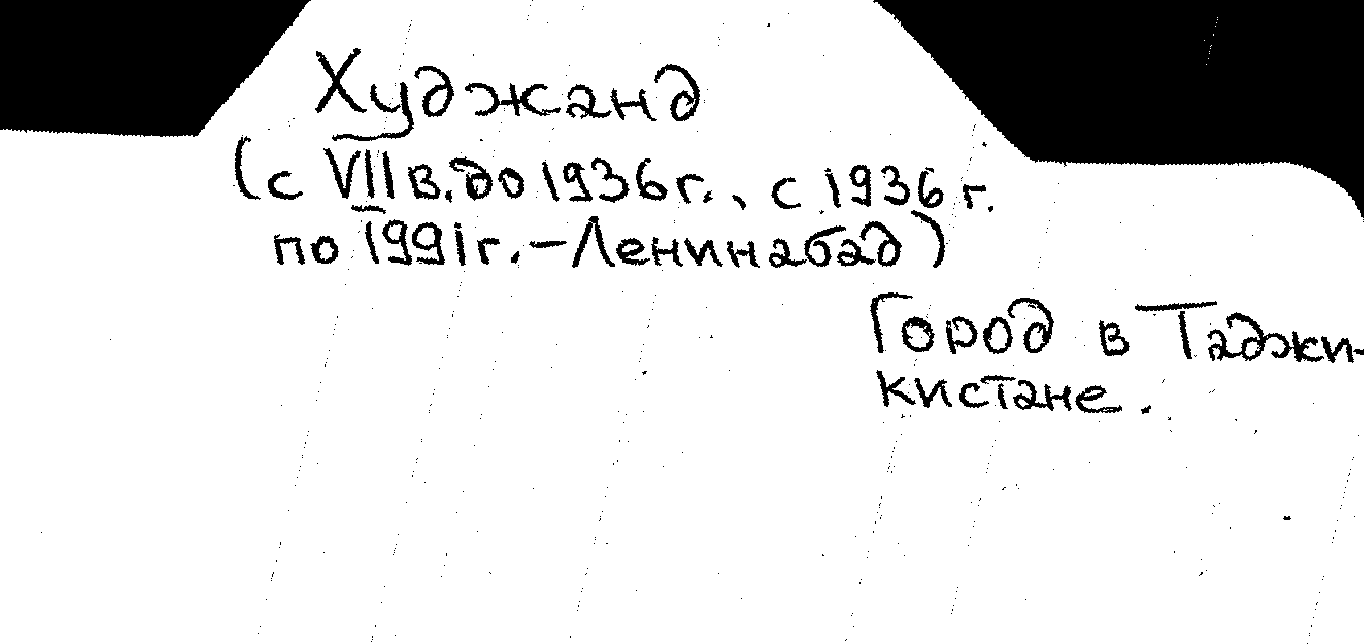 Худжанд
(с VII в. до 1936 г., с 1936 г.
по 1991 г. – Ленинабад)
Город в Таджи-
кистане.